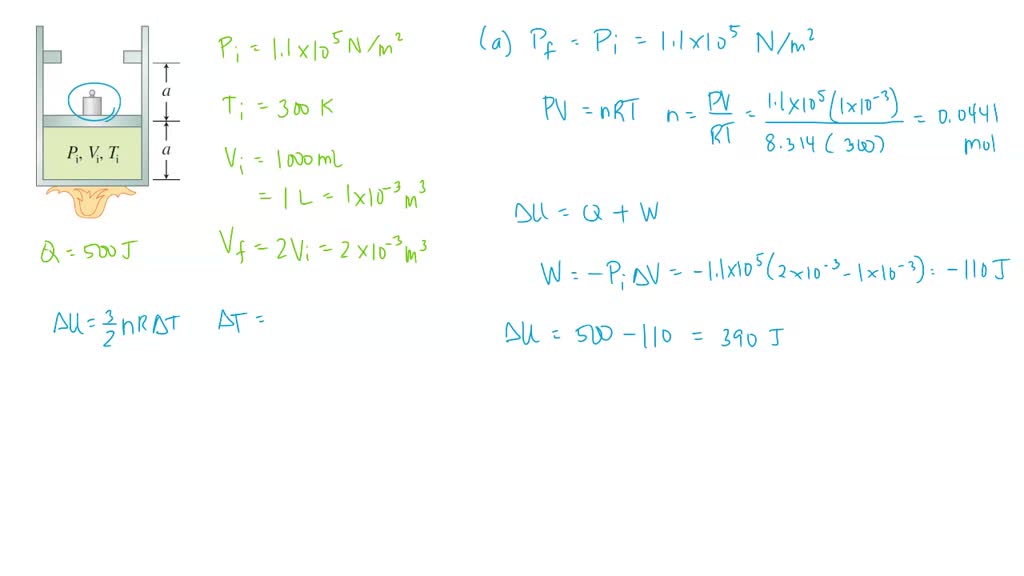 a
a
Pi, Vi, Ti
Q = 500 J
ΔU = 3/2 nRΔT ΔT =
Pi = 1.1×10^5 N/m^2
Ti = 300 K
Vi = 1000 mL
= 1 L = 1×10^-3 m^3
Vf = 2Vi = 2×10^-3 m^3
(a) Pf = Pi = 1.1×10^5 N/m^2
PV = nRT n = PV/RT = 1.1×10^5(1×10^-3)/8.314(300) = 0.0441 mol
ΔU = Q + W
W = -PiΔV = -1.1×10^5(2×10^-3 - 1×10^-3) = -110 J
ΔU = 500 - 110 = 390 J